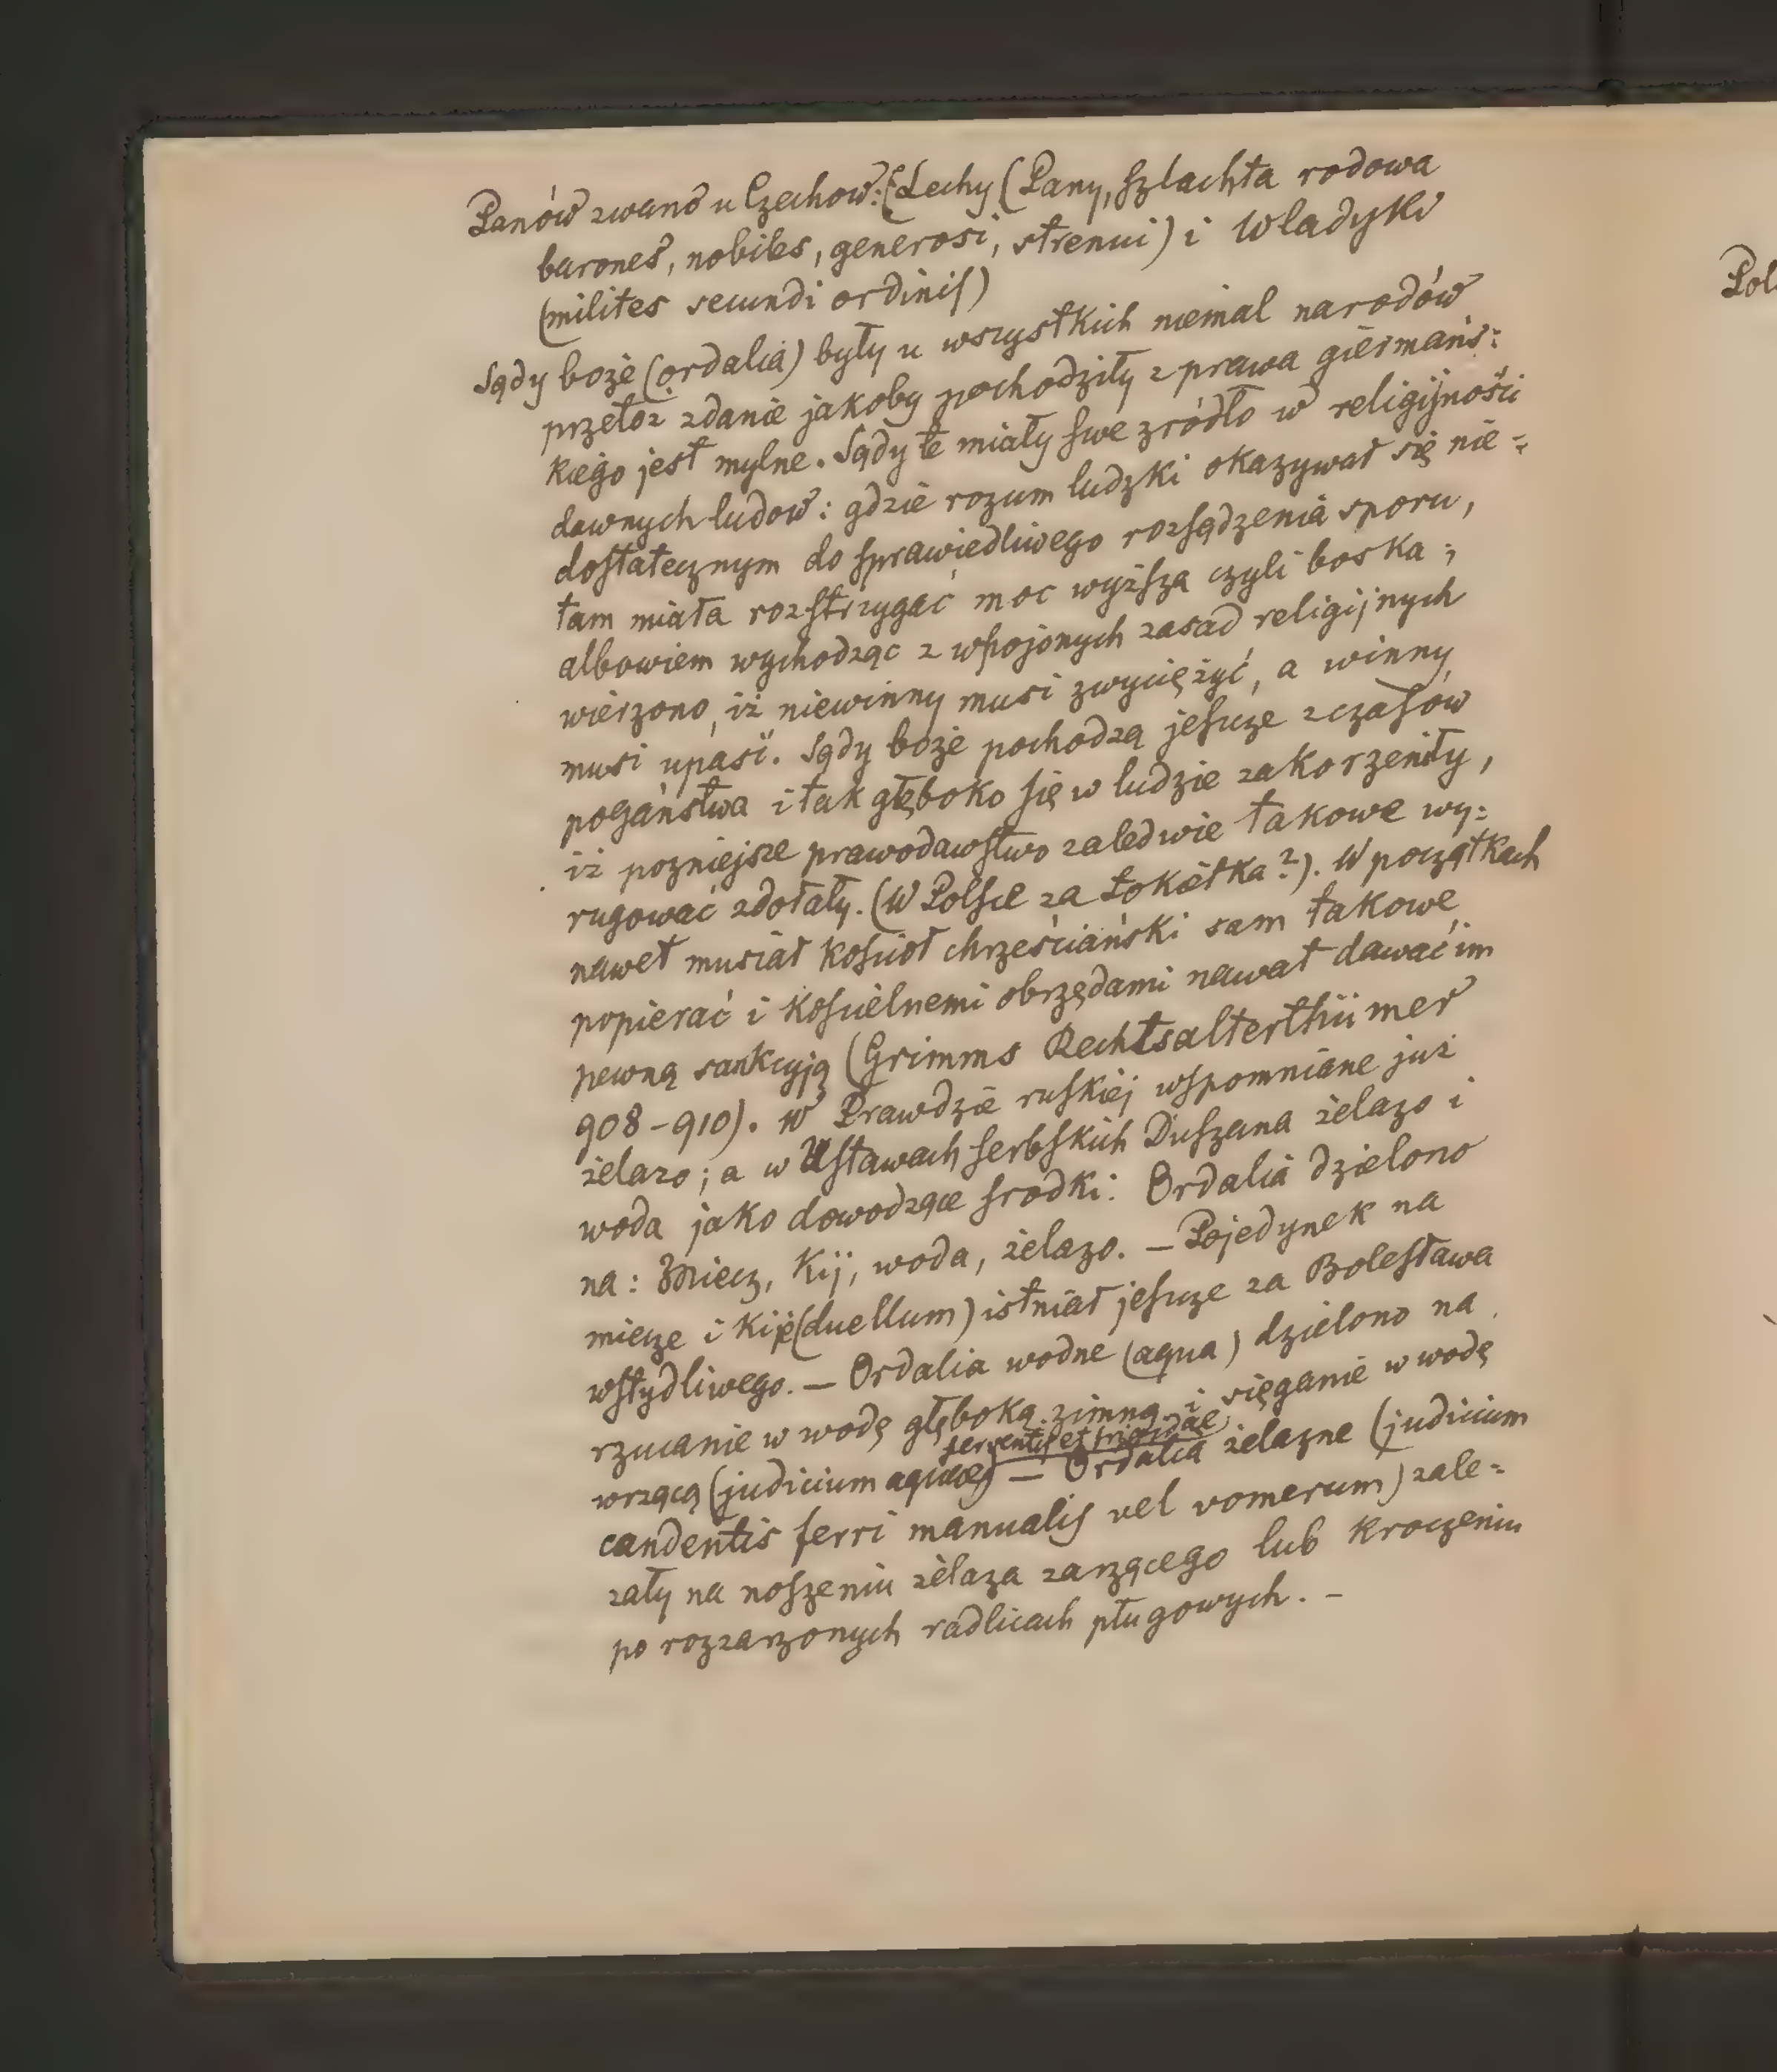 Panów zwano u Czechow: (Lechy (Pany, szlachta rodowa
barones, nobiles, generosi, strenui) i Wladyki
(milites secundi ordinis)
Sądy boże (ordalia) były u wszystkich niemal narodów
przetoż zdanie jakoby pochodziły z prawa giermańs:
kiego jest mylne. Sądy te miały swe zródło w religijności
dawnych ludow: gdzie rozum ludzki okazywał się nie=
dostatecznym do sprawiedliwego rozsądzenia sporu,
tam miała rozstrzygać moc wyższa czyli boska;
albowiem wychodząc z wpojonych zasad religijnych
wierzono, iż niewinny musi zwyciężyć, a winny
musi upaść. Sądy boże pochodzą jeszcze z czasów
pogaństwa i tak głęboko się w ludzie zakorzeniły,
iż pozniejsze prawodawstwo zaledwie takowe wy=
rugować zdołały. (W Polsce za Łokietka?). W początkach
nawet musiał kościoł chrześciański sam takowe
popierać i kościelnemi obrzędami nawet dawać im
pewną sankcyją (Grimms Rechtsalterthümer
908-910). W Prawdzie ruskiej wspomniane już
żelazo; a w Ustawach serbskich Duszana żelazo i
woda jako dowodzące srodki: Ordalia dzielono
na: Miecz, Kij, woda, żelazo. — Pojedynek na
miecze i kije (duellum) istniał jeszcze za Bolesława
wstydliwego. — Ordalia wodne (aqua) dzielono na
rzucanie w wodę głęboką zimną i sięganie w wodę
ferventis et frigidae
wrzącą (judicium aquae) — Ordalia żelazne (judicium
candentis ferri manualis vel vomerum) zale=
zały na noszeniu żelaza zarzącego lub kroczeniu
po rozzarzonych radlicach pługowych. —
Pol